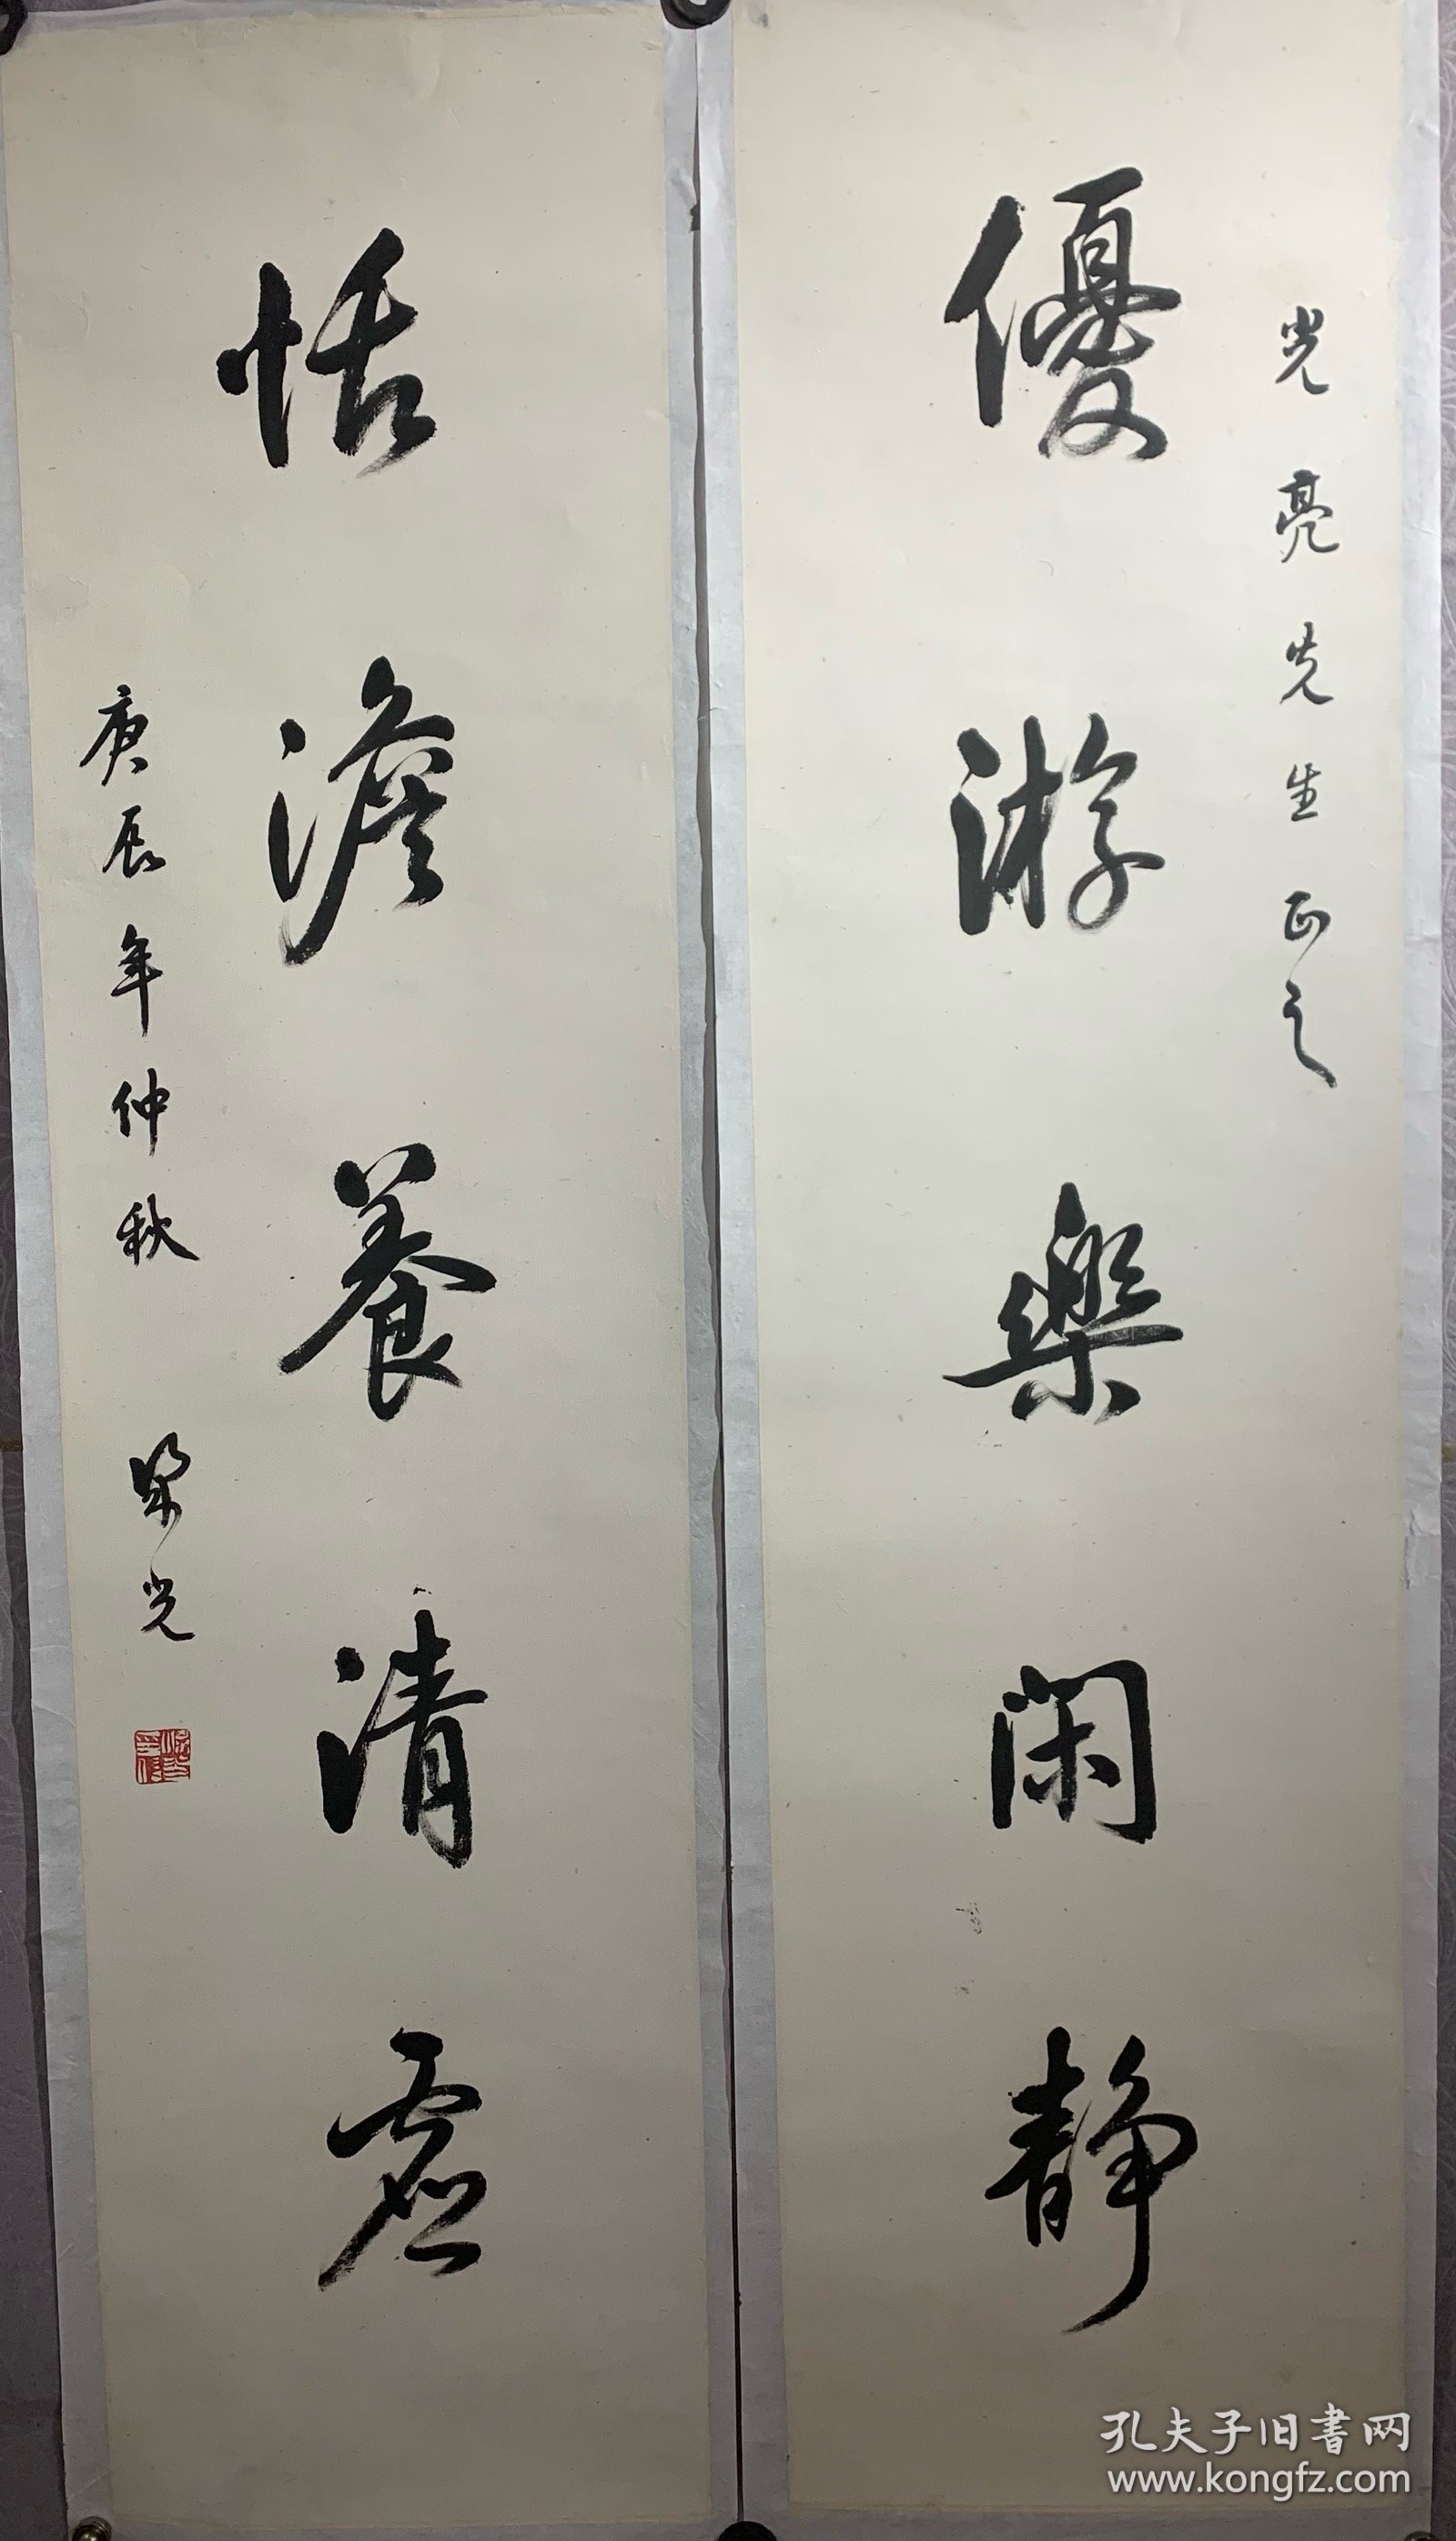 光亮先生正之
優游樂闲靜
恬澹養清虛
庚辰年仲秋 梁光
孔夫子旧書网
www.kongfz.com